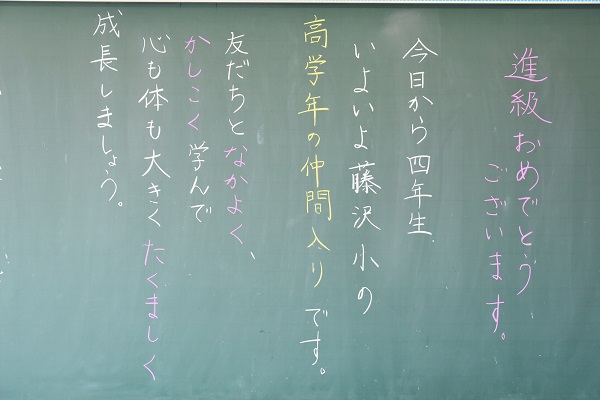 進級おめでとう
ございます。
今日から四年生
いよいよ藤沢小の
高学年の仲間入りです。
友だちとなかよく、
かしこく学んで
心も体も大きくたくましく
成長しましょう。